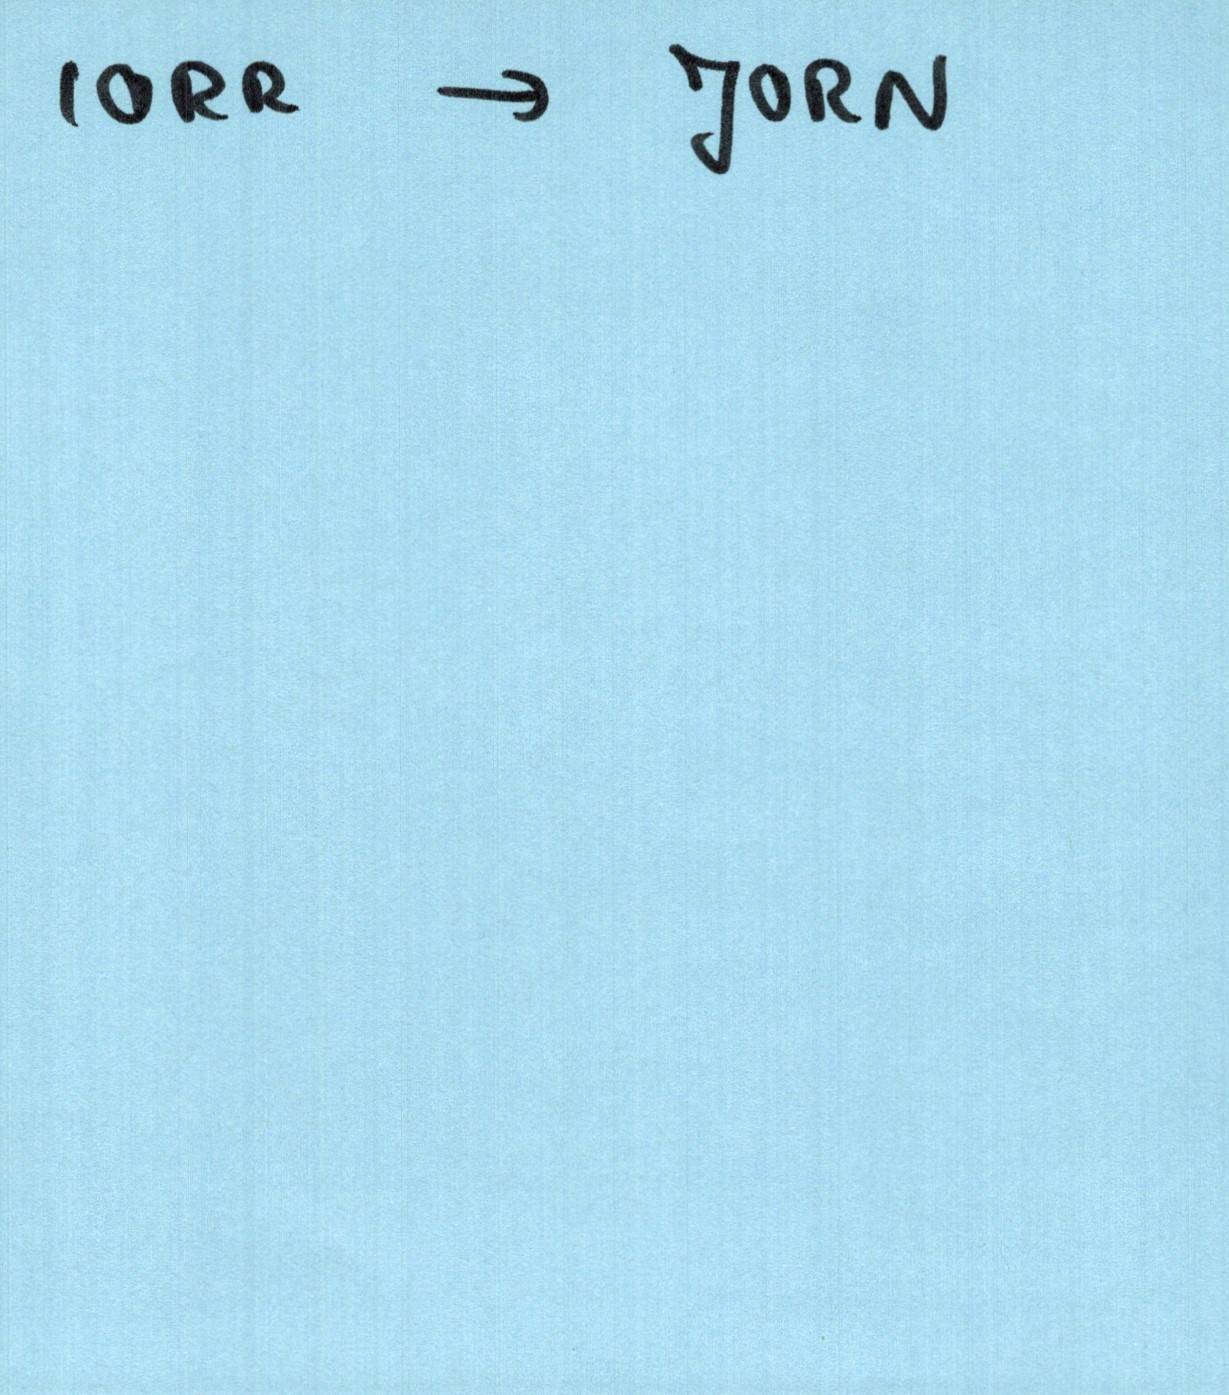 IORR → JORN